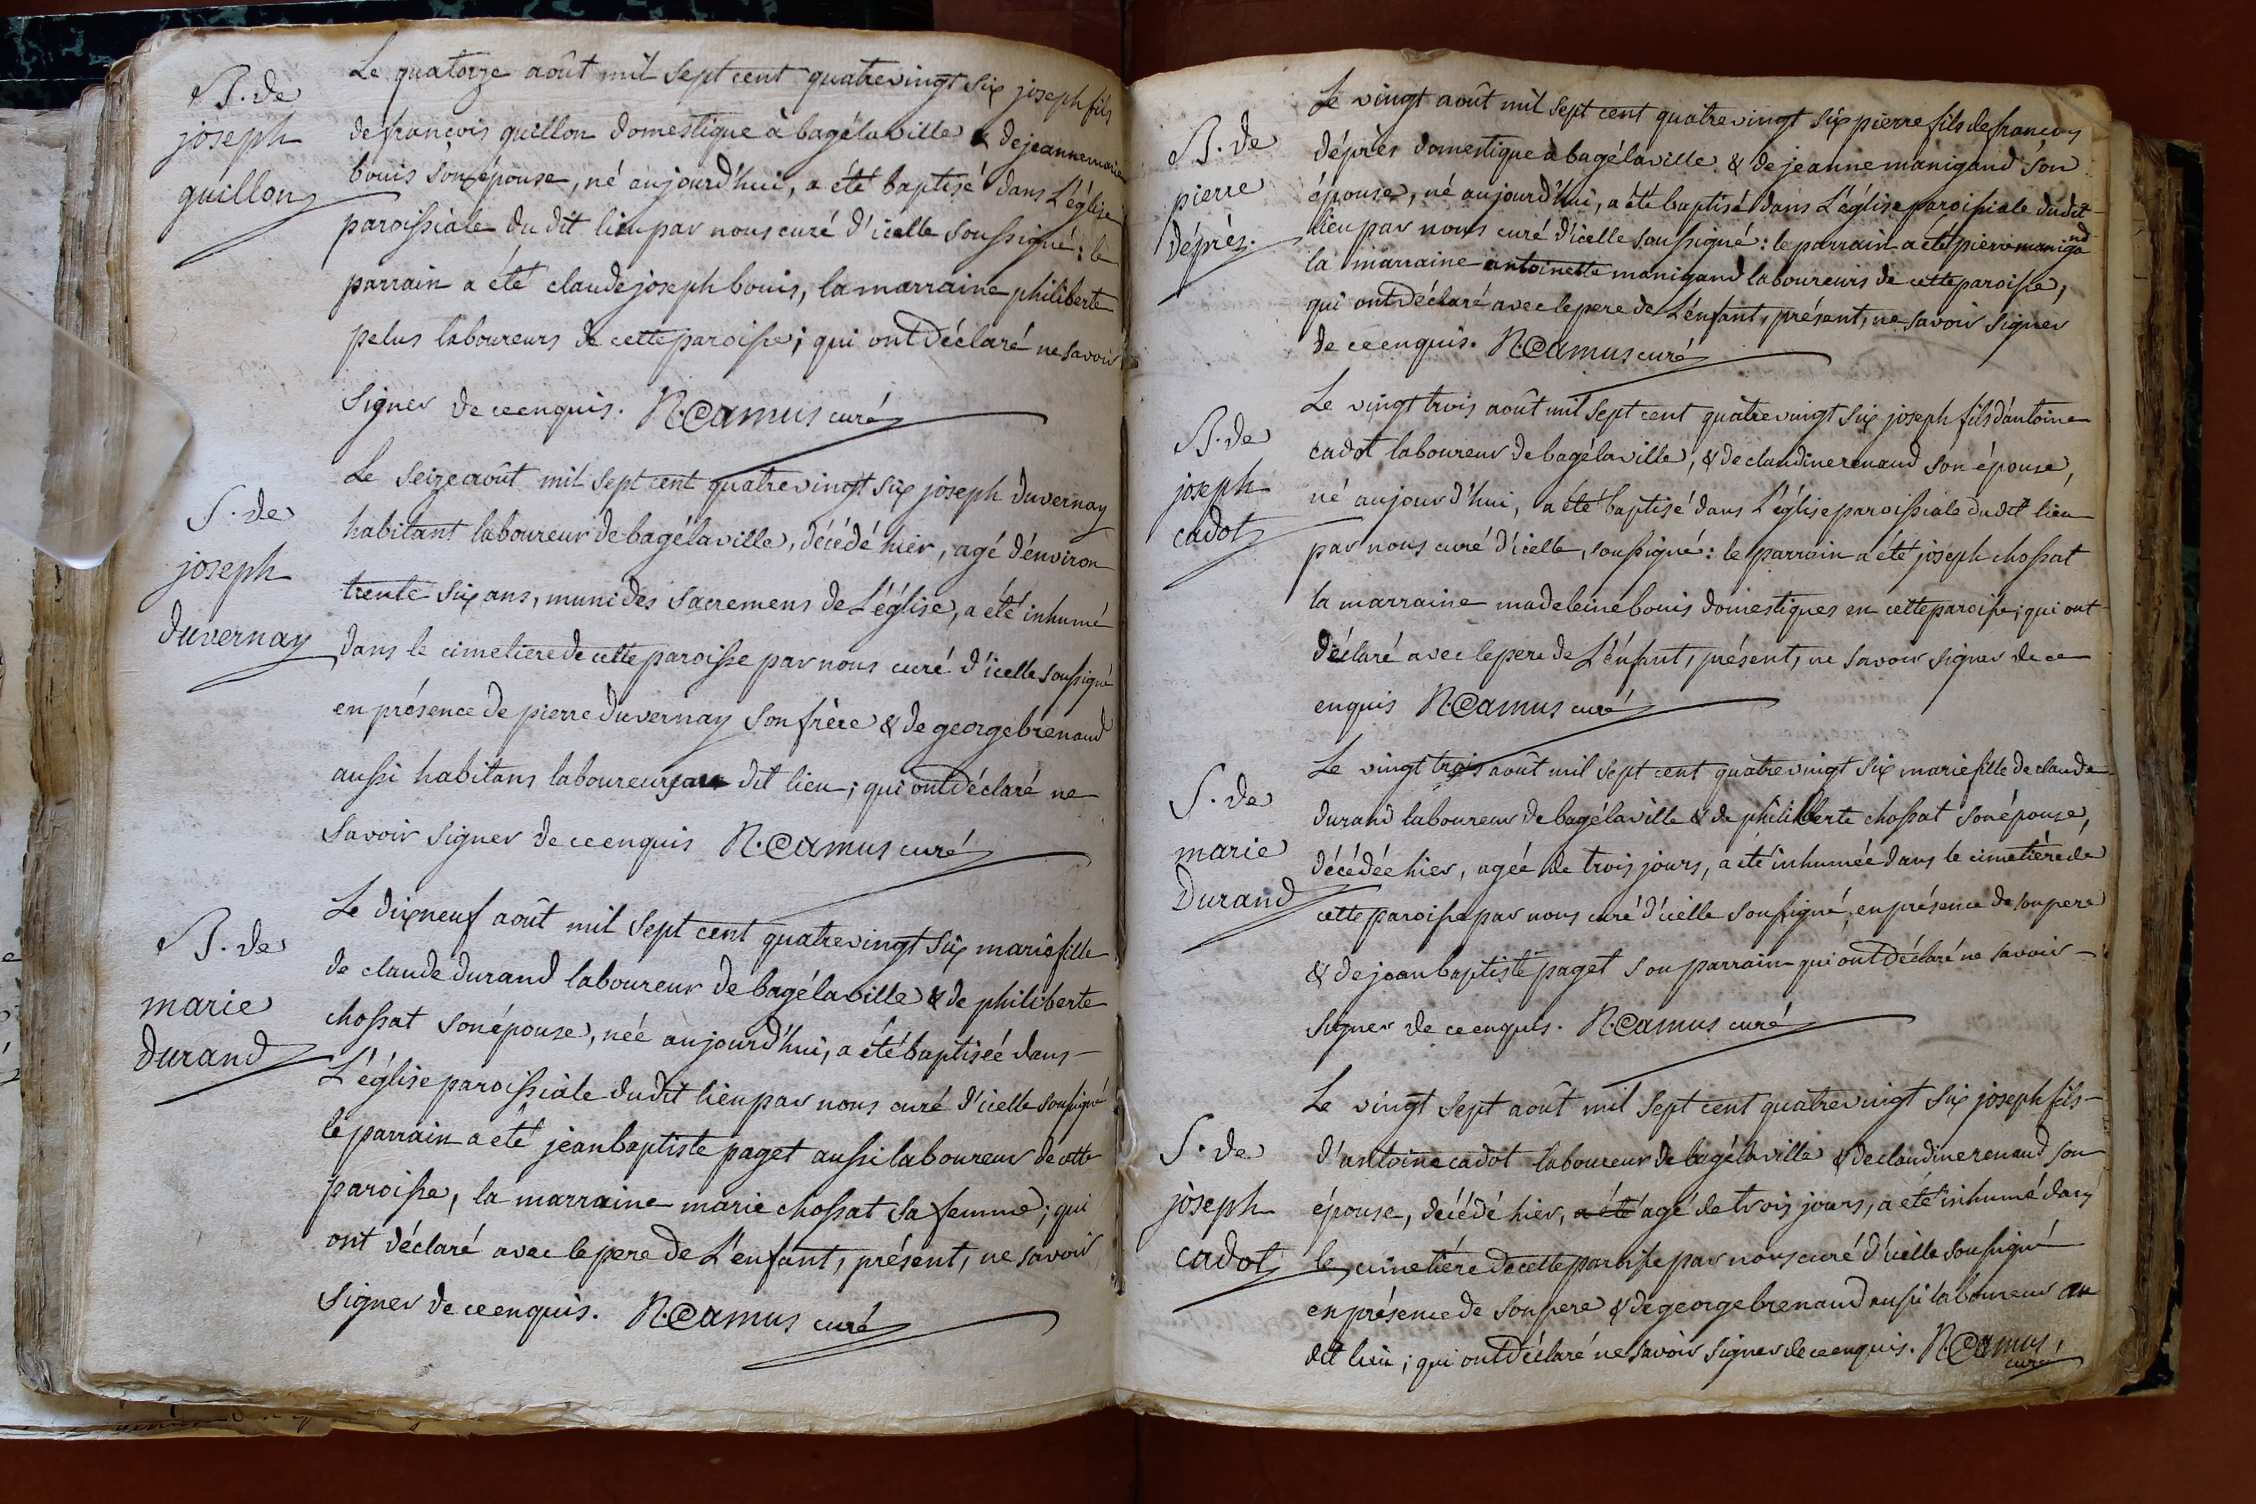 B. de
joseph
guillon
Le quatorze août mil sept cent quatrevingt six joseph fils
de françois guillon domestique à bagélaville & de jeanne marie
bouis son épouse, né aujourd'hui, a été baptisé dans L'église
paroissiale du dit lieu par nous curé d'icelle soussigné: le
parrain a été claude joseph bouis, la marraine philiberte
pelus laboureurs de cette paroisse; qui ont déclaré ne savoir
signer de ce enquis. N. Camus curé
S. de
joseph
duvernay
Le seize août mil sept cent quatrevingt six joseph duvernay
habitant laboureur de bagélaville, décédé hier, agé d'environ
trente six ans, muni des sacremens de L'église, a été inhumé
dans le cimetiere de cette paroisse par nous curé d'icelle soussigné
en présence de pierre duvernay son frère & de george brenaud
aussi habitans laboureurs au dit lieu; qui ont déclaré ne
savoir signer de ce enquis N. Camus curé
B. de
marie
durand
Le dix neuf août mil sept cent quatrevingt six marie fille
de claude durand laboureur de bagélaville & de philiberte
chossat son épouse, née aujourd'hui, a été baptiseé dans
L'église paroissiale dudit lieu par nous curé d'icelle soussigné
le parrain a été jean baptiste paget aussi laboureur de cette
paroisse, la marraine marie chossat sa femme; qui
ont déclaré avec le pere de L'enfant, présent, ne savoir
signer de ce enquis. N. Camus curé
B. de
pierre
déprès.
Le vingt août mil sept cent quatrevingt six pierre fils de françois
déprès domestique à bagélaville & de jeanne manigand son
épouse, né aujourd'hui, a été baptisé dans L'église paroissiale dudit
lieu par nous curé d'icelle soussigné: le parrain a été pierre manigand
la marraine antoinette manigand laboureurs de cette paroisse,
qui ont déclaré avec le pere de L'enfant, présent, ne savoir signer
de ce enquis. N. Camus curé
B. de
joseph
cadot
Le vingt trois août mil sept cent quatrevingt six joseph fils d'antoine
cadot laboureur de bagélaville, & de claudine renaud son épouse,
né aujourd'hui, a été baptisé dans L'église paroissiale du dit lieu
par nous curé d'icelle, soussigné: le parrain a été joseph chossat
la marraine madeleine bouis domestiques en cette paroisse; qui ont
déclaré avec le pere de L'énfant, présent, ne savoir signer de ce
enquis N. Camus curé
S. de
marie
Durand
Le vingt trois août mil sept cent quatrevingt six marie fille de claude
durand laboureur de bagélaville & de philiberte chossat son épouse,
décédée hier, agée de trois jours, a été inhumée dans le cimetière de
cette paroisse par nous curé d'icelle soussigné, en présence de son pere
& de jean baptiste paget son parrain qui ont déclaré ne savoir
signer de ce enquis. N. Camus curé
S. de
joseph
cadot
Le vingt sept août mil sept cent quatrevingt six joseph fils
d'antoine cadot laboureur de bagélaville & de claudine renaud son
épouse, décédé hier, a été agé de trois jours, a été inhumé dans
le cimetière de cette paroisse par nous curé d'icelle soussigné
en présence de son pere & de george brenaud aussi laboureur au
dit lieu; qui ont déclaré ne savoir signer de ce enquis. N. Camus
curé